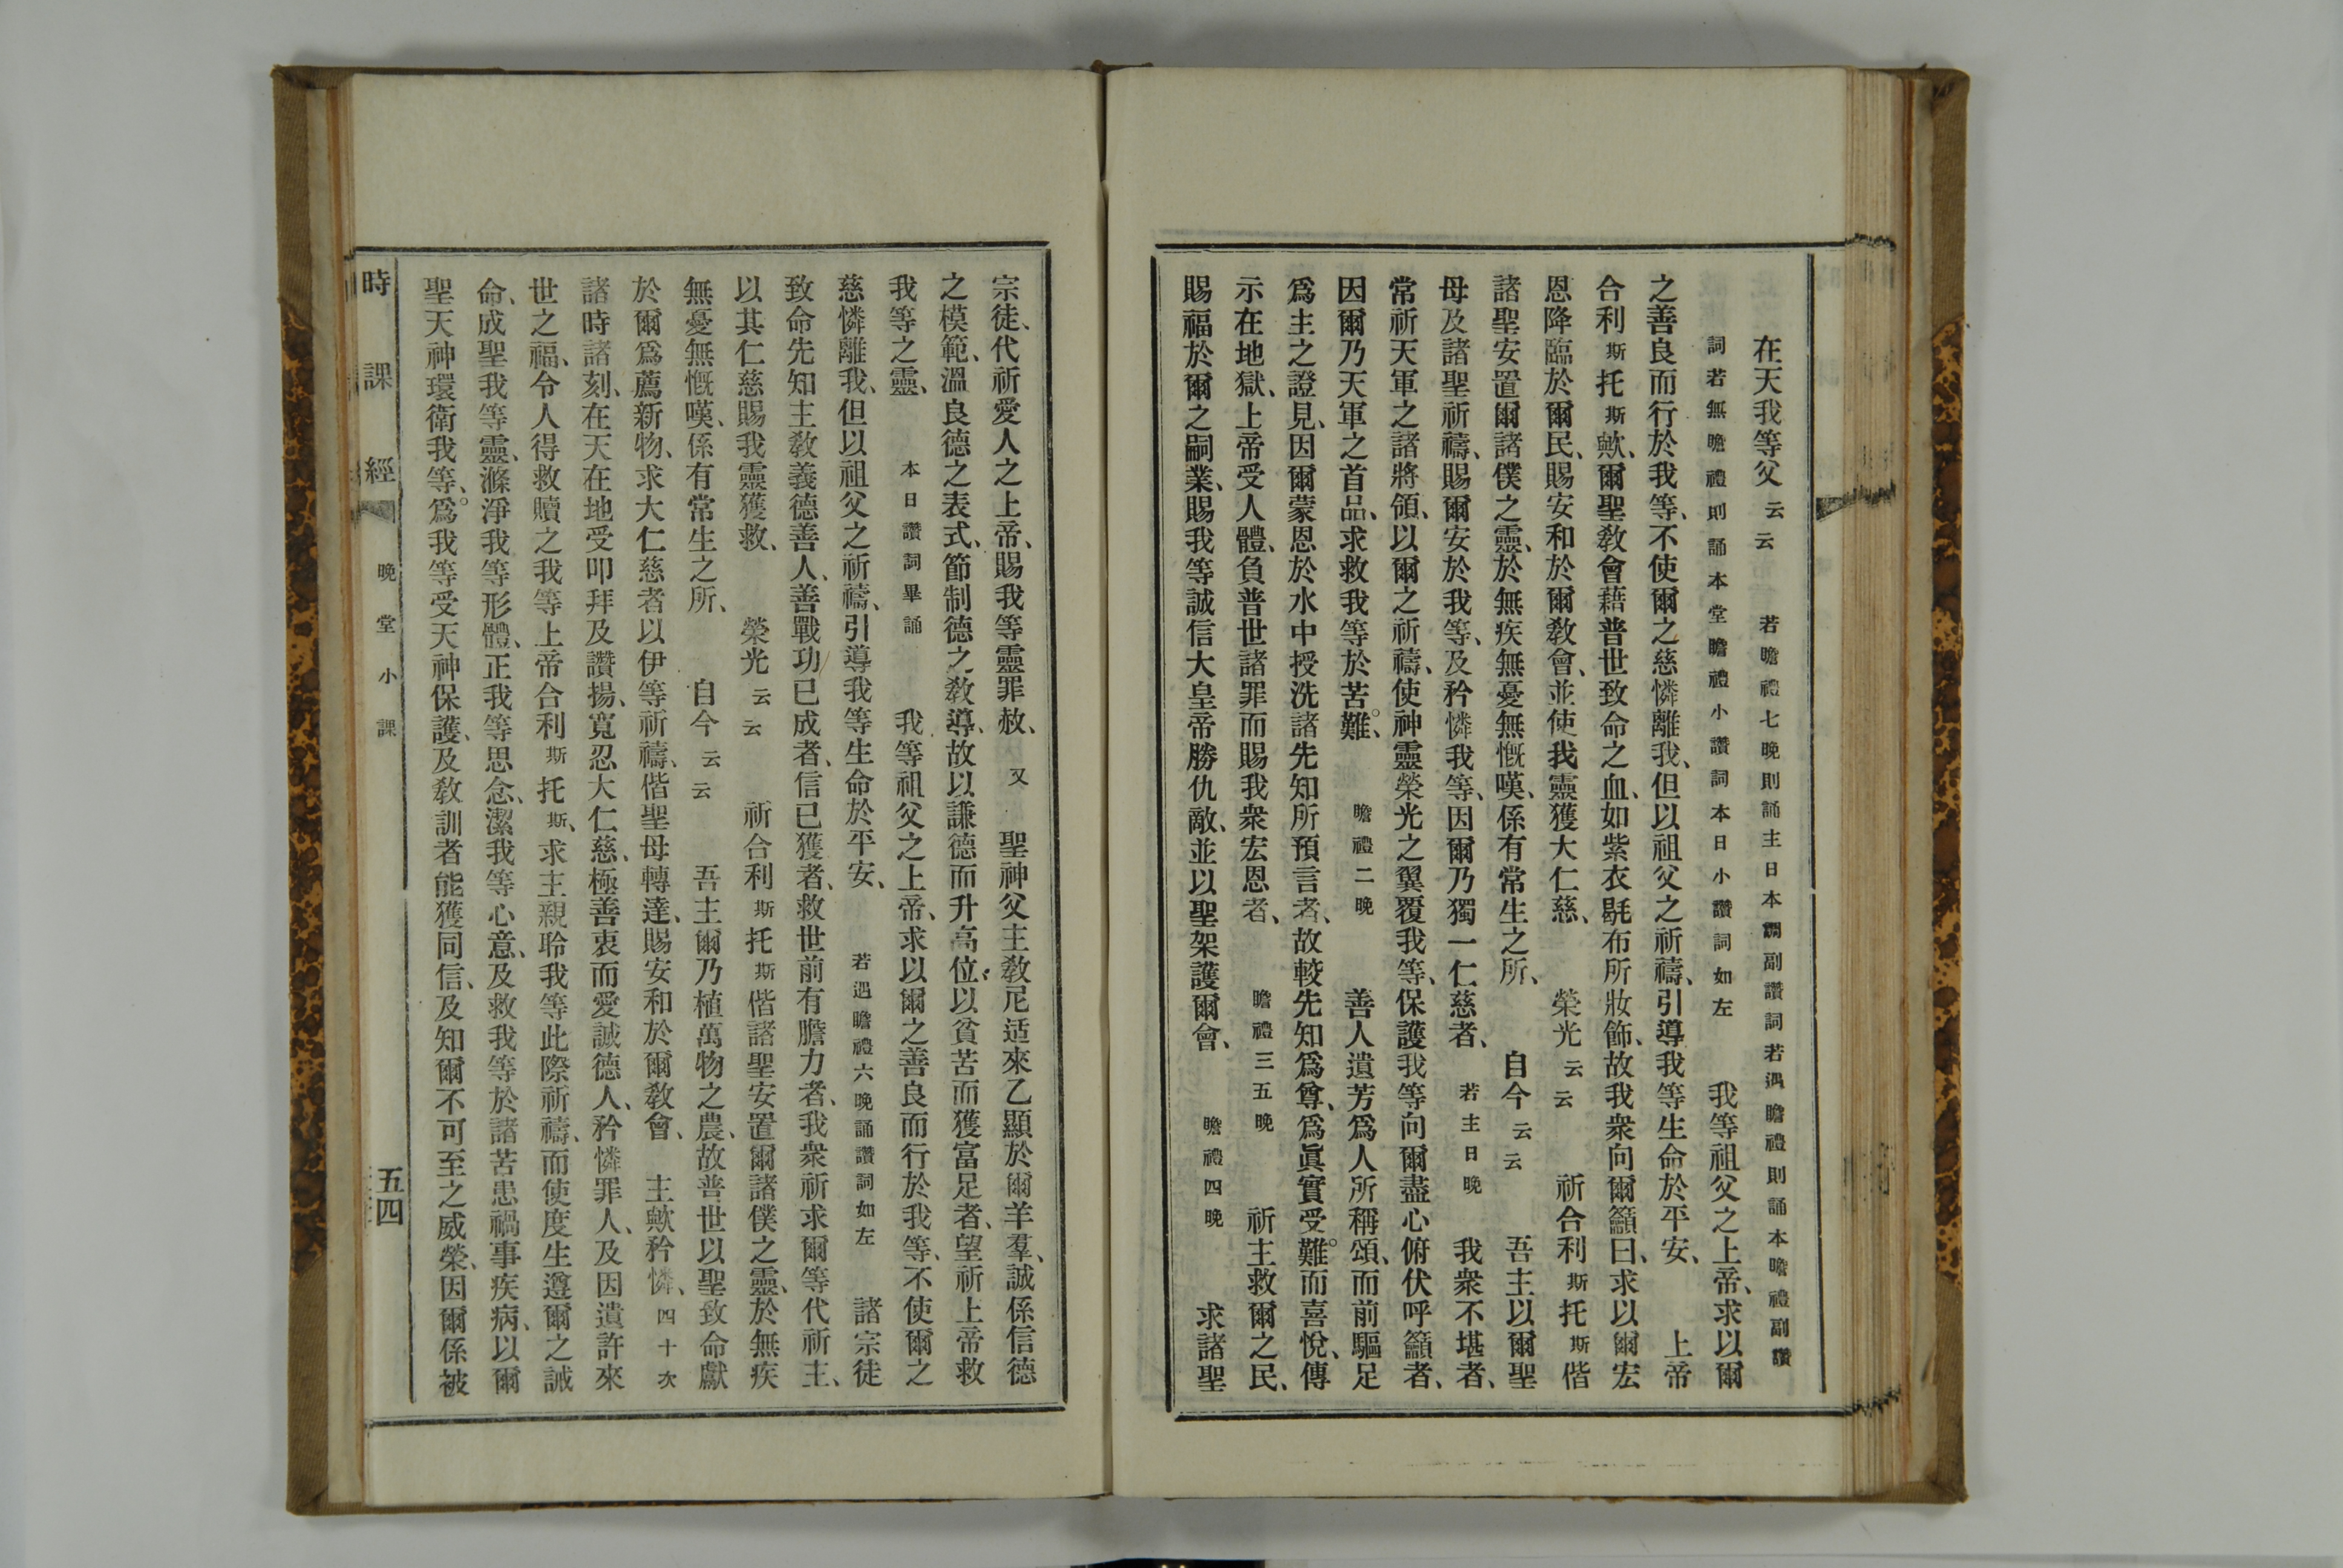 在天我等父云云 若瞻禮七晚則誦主日本調副讚詞若遇瞻禮則誦本瞻禮副讚
詞若無瞻禮則誦本堂瞻禮小讚詞本日小讚詞如左 我等祖父之上帝、求以爾
之善良而行於我等、不使爾之慈憐離我、但以祖父之祈禱、引導我等生命於平安、 上帝
合利斯托斯歟、爾聖教會藉普世致命之血、如紫衣毾布所妝飾、故我衆向爾籲曰、求以爾宏
恩降臨於爾民、賜安和於爾教會、並使我靈獲大仁慈、 榮光云云 祈合利斯托斯偕
諸聖安置爾諸僕之靈、於無疾無憂無慨嘆、係有常生之所、 自今云云 吾主以爾聖
母及諸聖祈禱、賜爾安於我等、及矜憐我等、因爾乃獨一仁慈者、 若主日晚 我衆不堪者、
常祈天軍之諸將領、以爾之祈禱、使神靈榮光之翼覆我等、保護我等向爾盡心俯伏呼籲者、
因爾乃天軍之首品、求救我等於苦難。 瞻禮二晚 善人遺芳爲人所稱頌、而前驅足
爲主之證見、因爾蒙恩於水中授洗諸先知所預言者、故較先知爲尊、爲眞實受難。而喜悅、傳
示在地獄、上帝受人體、負普世諸罪而賜我衆宏恩者、 瞻禮三五晚 祈主救爾之民、
賜福於爾之嗣業、賜我等誠信大皇帝勝仇敵、並以聖架護爾會、 瞻禮四晚 求諸聖
宗徒、代祈愛人之上帝、賜我等靈罪赦、 又 聖神父主教尼适來乙顯於爾羊羣、誠係信德
之模範、溫良德之表式、節制德之教導、故以謙德而升高位、以貧苦而獲富足者、望祈上帝救
我等之靈、 本日讚詞畢誦 我等祖父之上帝、求以爾之善良而行於我等、不使爾之
慈憐離我、但以祖父之祈禱、引導我等生命於平安、 若遇瞻禮六晚誦讚詞如左 諸宗徒
致命先知主教義德善人、善戰功已成者、信已獲者、救世前有膽力者、我衆祈求爾等代祈主、
以其仁慈賜我靈獲救、 榮光云云 祈合利斯托斯偕諸聖安置爾諸僕之靈、於無疾
無憂無慨嘆、係有常生之所、 自今云云 吾主爾乃植萬物之農、故普世以聖致命獻
於爾爲薦新物、求大仁慈者以伊等祈禱、偕聖母轉達、賜安和於爾教會、 主歟矜憐、四十次
諸時諸刻、在天在地受叩拜及讚揚、寬忍大仁慈、極善衷而愛誠德人、矜憐罪人、及因遺許來
世之福、令人得救贖之我等上帝合利斯托斯、求主親聆我等此際祈禱、而使度生遵爾之誡
命、成聖我等靈、滌淨我等形體、正我等思念、潔我等心意、及救我等於諸苦患禍事疾病、以爾
聖天神環衛我等、爲。我等受天神保護、及教訓者能獲同信、及知爾不可至之威榮、因爾係被
時課經 晚堂小課 五四